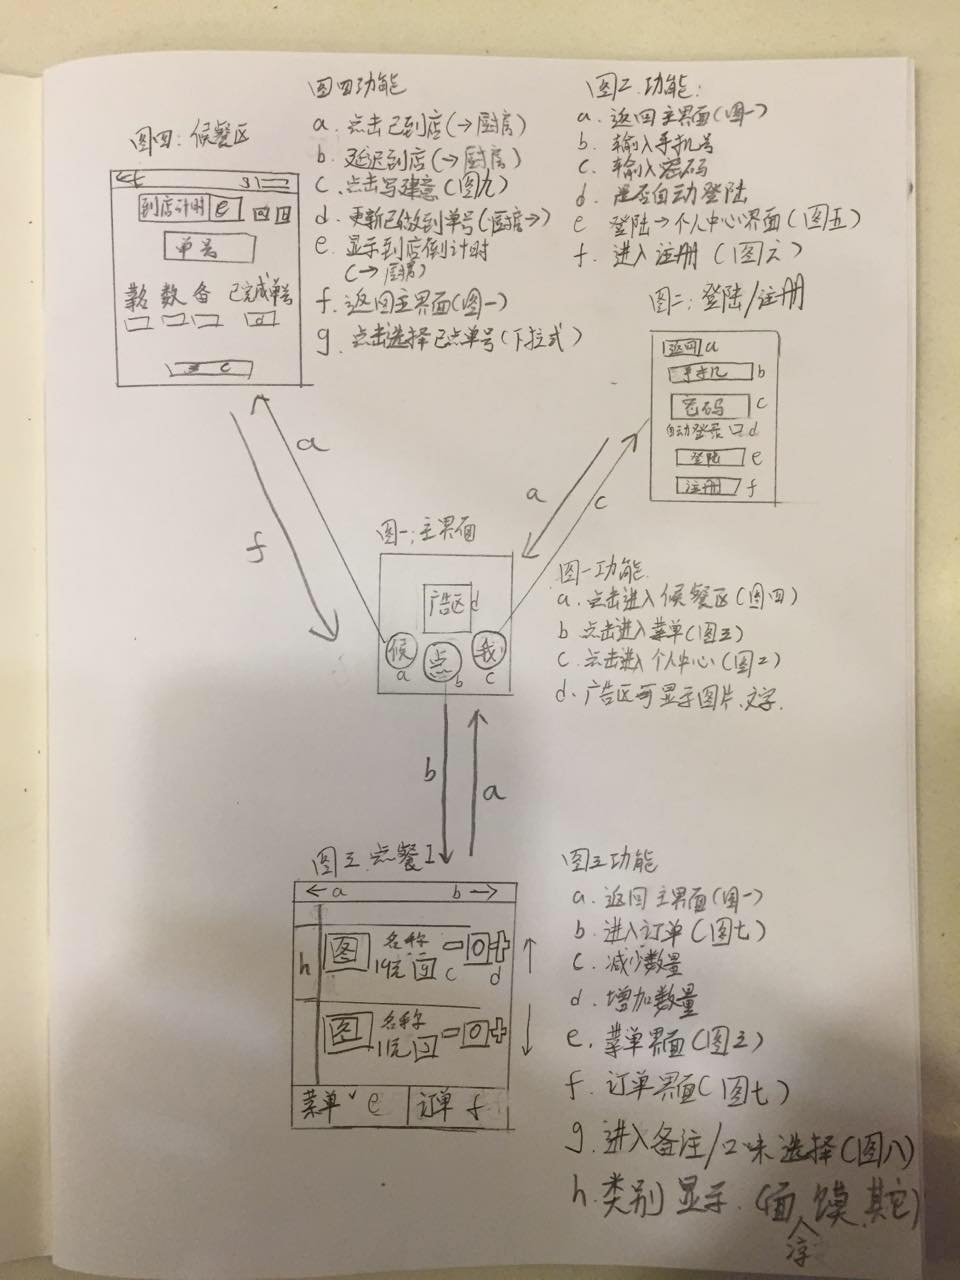 图四功能
a. 点击已到店(→厨房)
b. 延迟到店(→厨房)
c. 点击写建意(图九)
d. 更新已做到单号(厨房→)
e. 显示到店倒计时
(→厨房)
f. 返回主界面(图一)
g. 点击选择已点单号(下拉式)
图二功能:
a. 返回主界面(图一)
b. 输入手机号
c. 输入密码
d. 是否自动登陆
e 登陆→个人中心界面(图五)
f. 进入注册 (图六)
图四: 候餐区
←f
到店计时 e
单号
数 备 已完成单号
d
c
图二: 登陆/注册
返回 a
手机 b
密码 c
自动登录 口 d
登陆 e
注册 f
a
f
a
c
图一: 主界面
广告区 d
候 点 我
a b c
图一功能
a. 点击进入候餐区(图四)
b 点击进入菜单(图三)
c. 点击进入个人中心(图二)
d、广告区可显示图片、文字.
b
a
图三.点餐I
← a b →
h
图 名称 - 0 +
19元 c d
图 名称 - 0 +
11元
菜单 e 订单 f
图三功能
a. 返回主界面(图一)
b. 进入订单(图七)
c. 减少数量
d. 增加数量
e. 菜单界面(图三)
f. 订单界面(图七)
g. 进入备注/口味选择(图八)
h. 类别显示.(面、馍、其它)